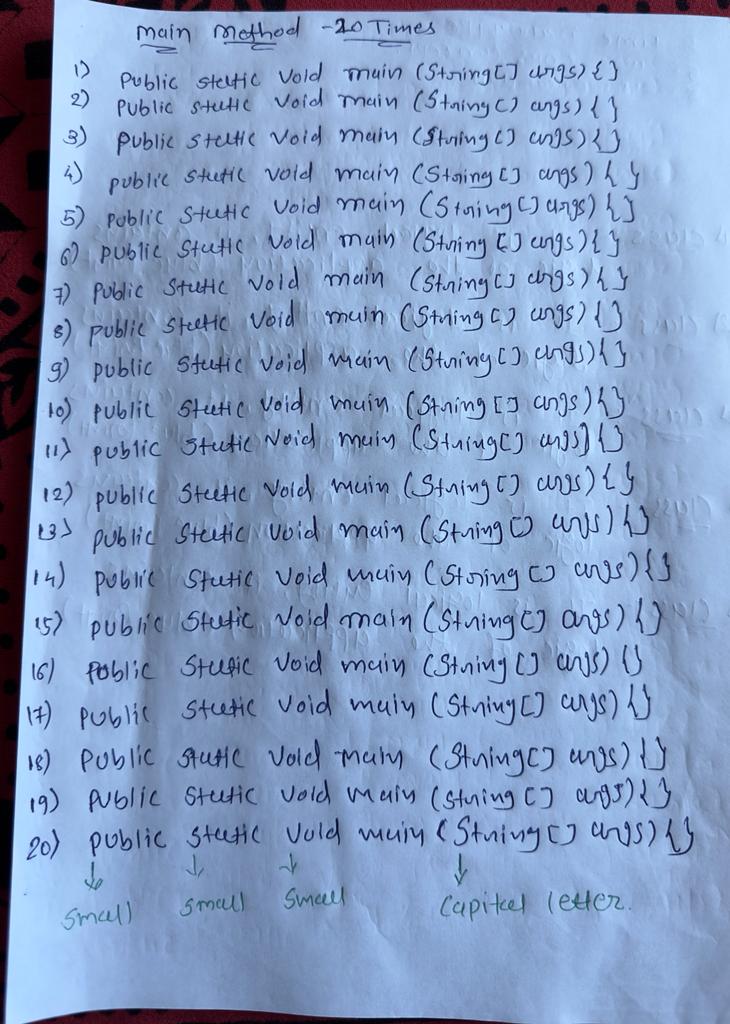 Main Method - 20 Times
1) Public static void main (String[] args) {}
2) Public static void main (String[] args) { }
3) Public static void main (String[] args) {}
4) public static void main (String [] args) { }
5) Public static Void main (String [] args) {}
6) public static void main (String [] args) {}
7) Public Static void main (String [] args) {}
8) public static void main (String [] args) {}
9) public static void main (String [] args) {}
10) public static void main (String [] args) {}
11) public static void main (String[] args) {}
12) public Static void main (String [] args) { }
13) public Static void main (String [] args) {}
14) public Static void main (String [] args) {}
15) public Static Void main (String [] args) {}
16) Public Static Void main (String [] args) {}
17) Public Static Void main (String [] args) {}
18) Public Static Void main (String[] args) {}
19) Public Static Void main (String [] args) {}
20) public static void main (String [] args) {}
↓ ↓ ↓ ↓
Small Small Small Capital letter.